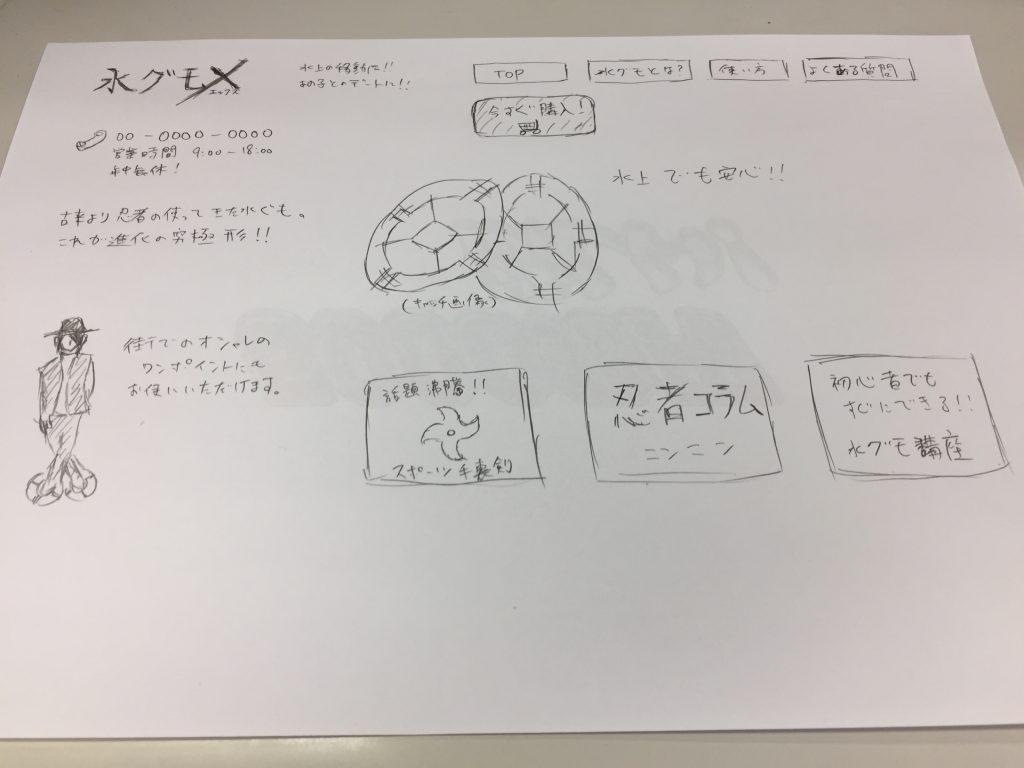 水グモX
エックス
水上の移動に!!
あの子とのデートに!!
TOP
水グモとな?
使い方
よくある質問
今すぐ購入!
00-0000-0000
営業時間 9:00-18:00
年中無休!
水上でも安心!!
古来より忍者の使ってきた水ぐも。
これが進化の究極形!!
(キャッチ画像)
街でのオシャレの
ワンポイントにも
お使いいただけます。
話題沸騰!!
スポーツ手裏剣
忍者コラム
ニンニン
初心者でも
すぐにできる!!
水グモ講座